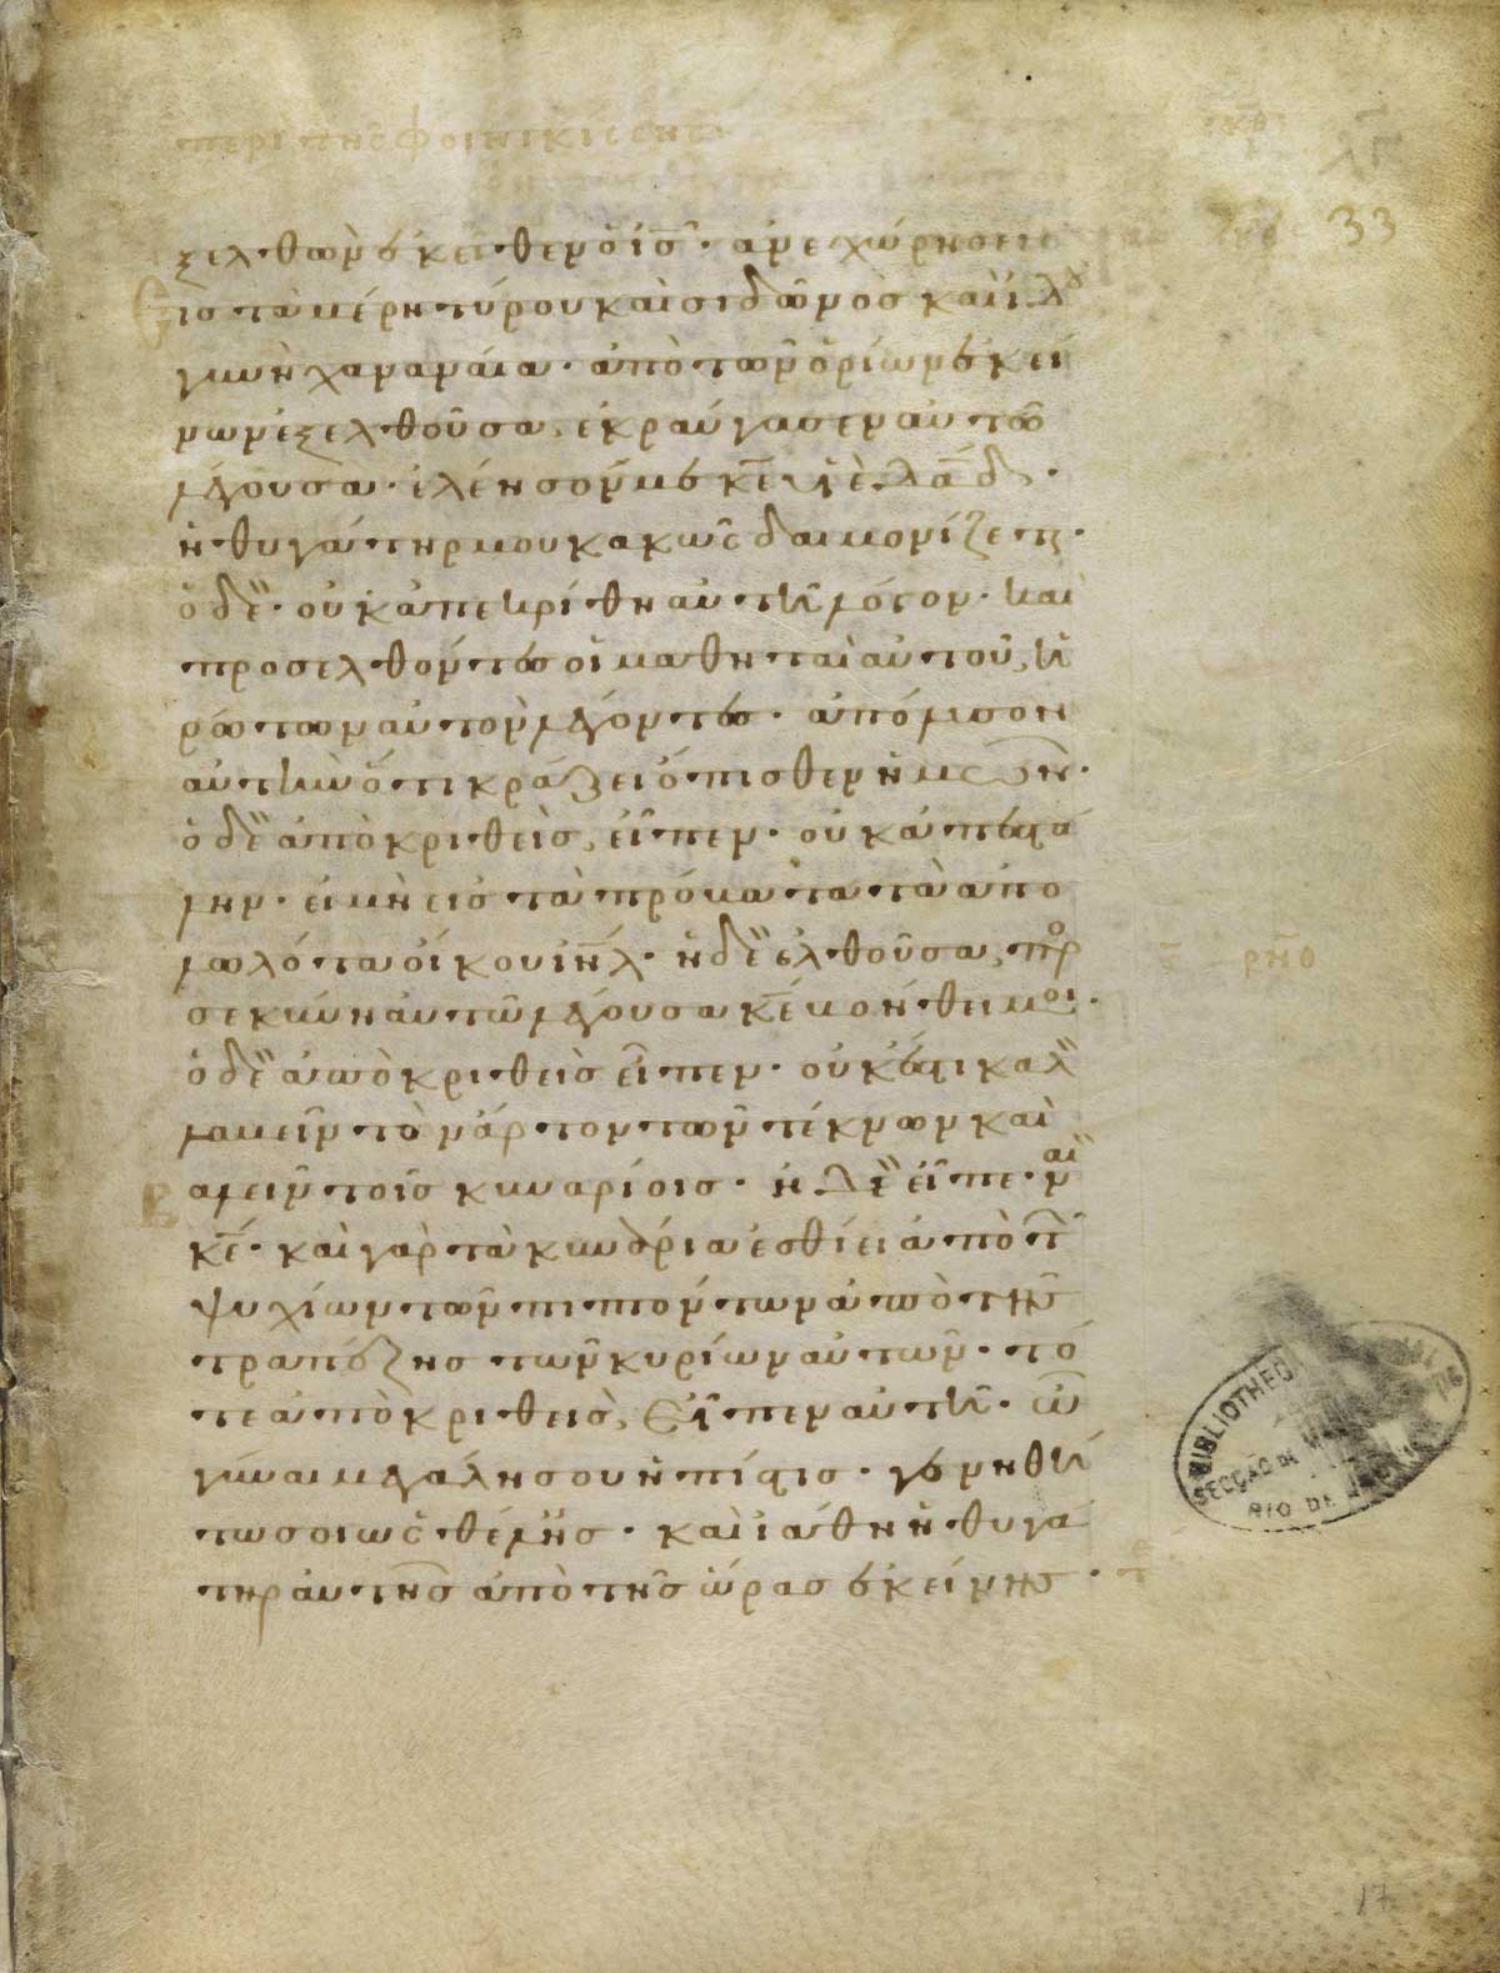 περὶ τῆς φοινικίσσης
33
ξελθὼν ἐκεῖθεν ὁ ἰς̅· ἀνεχώρησεν
εἰς τὰ μέρη τύρου καὶ σιδῶνος καὶ ἰδοὺ
γυνὴ χαναναία· ἀπὸ τῶν ὁρίων ἐκεί
νων ἐξελθοῦσα, ἐκραύγασεν αὐτῶ
λέγουσα· ἐλέησόν με κε̅ υἱὲ δα̅δ·
ἡ θυγάτηρ μου κακῶς δαιμονίζεται·
ὁ δὲ· οὐκ ἀπεκρίθη αὐτῆ λόγον· καὶ
προσελθόντες οἱ μαθηταὶ αὐτοῦ, ἠ
ρώτων αὐτὸν λέγοντες· ἀπόλυσον
αὐτὴν ὅτι κράζει ὄπισθεν ἡμῶν·
ὁ δὲ ἀποκριθεὶς, εἶπεν· οὐκ ἀπεστά
λην· εἰ μὴ εἰς τὰ πρόβατα τὰ ἀπο
λωλότα οἴκου ιη̅λ· ἡ δὲ ἐλθοῦσα, προ
σεκύνη αὐτῶ λέγουσα κε̅ βοήθει μοι·
ὁ δὲ ἀποκριθεὶς εἶπεν· οὐκ ἔστι καλὸν
λαβεῖν τὸν ἄρτον τῶν τέκνων καὶ
βαλεῖν τοῖς κυναρίοις· ἡ δὲ εἶπε· ναὶ
κε̅· καὶ γὰρ τὰ κυνάρια ἐσθίει ἀπὸ τῶν
ψυχίων τῶν πιπτόντων ἀπὸ τῆς
τραπέζης τῶν κυρίων αὐτῶν· τό
τε ἀποκριθεὶς, εἶπεν αὐτῆ· ὦ
γύναι μεγάλη σου ἡ πίστις· γενηθή
τω σοι ὡς θέλεις· καὶ ἰάθη ἡ θυγά
τηρ αὐτῆς ἀπὸ τῆς ὥρας ἐκείνης·
ρνθ
BIBLIOTHECA
SECÇÃO DE
RIO DE
17